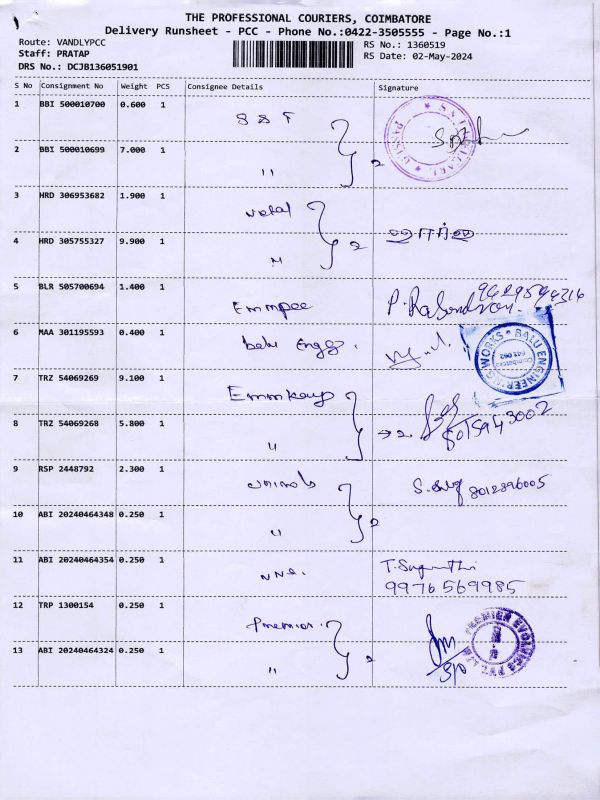 THE PROFESSIONAL COURIERS, COIMBATORE
Delivery Runsheet - PCC - Phone No.:0422-3505555 - Page No.:1
Route: VANDLYPCC
RS No.: 1360519
Staff: PRATAP
RS Date: 02-May-2024
DRS No.: DCJB136051901
S No Consignment No Weight PCS Consignee Details Signature
1 BBI 500010700 0.600 1 S S F
2 BBI 500010699 7.000 1 " 2
3 HRD 306953682 1.900 1
4 HRD 305755327 9.900 1 " 2
5 BLR 505700694 1.400 1 Emmpee
6 MAA 301195593 0.400 1 balu Engg.
BALU ENGINEERING WORKS
7 TRZ 54069269 9.100 1
8 TRZ 54069268 5.800 1 " → 2 8015943002
9 RSP 2448792 2.300 1 8012896005
10 ABI 20240464348 0.250 1 " 2
11 ABI 20240464354 0.250 1 T. Suganthi
9976569985
12 TRP 1300154 0.250 1 Premier.
13 ABI 20240464324 0.250 1 " 2